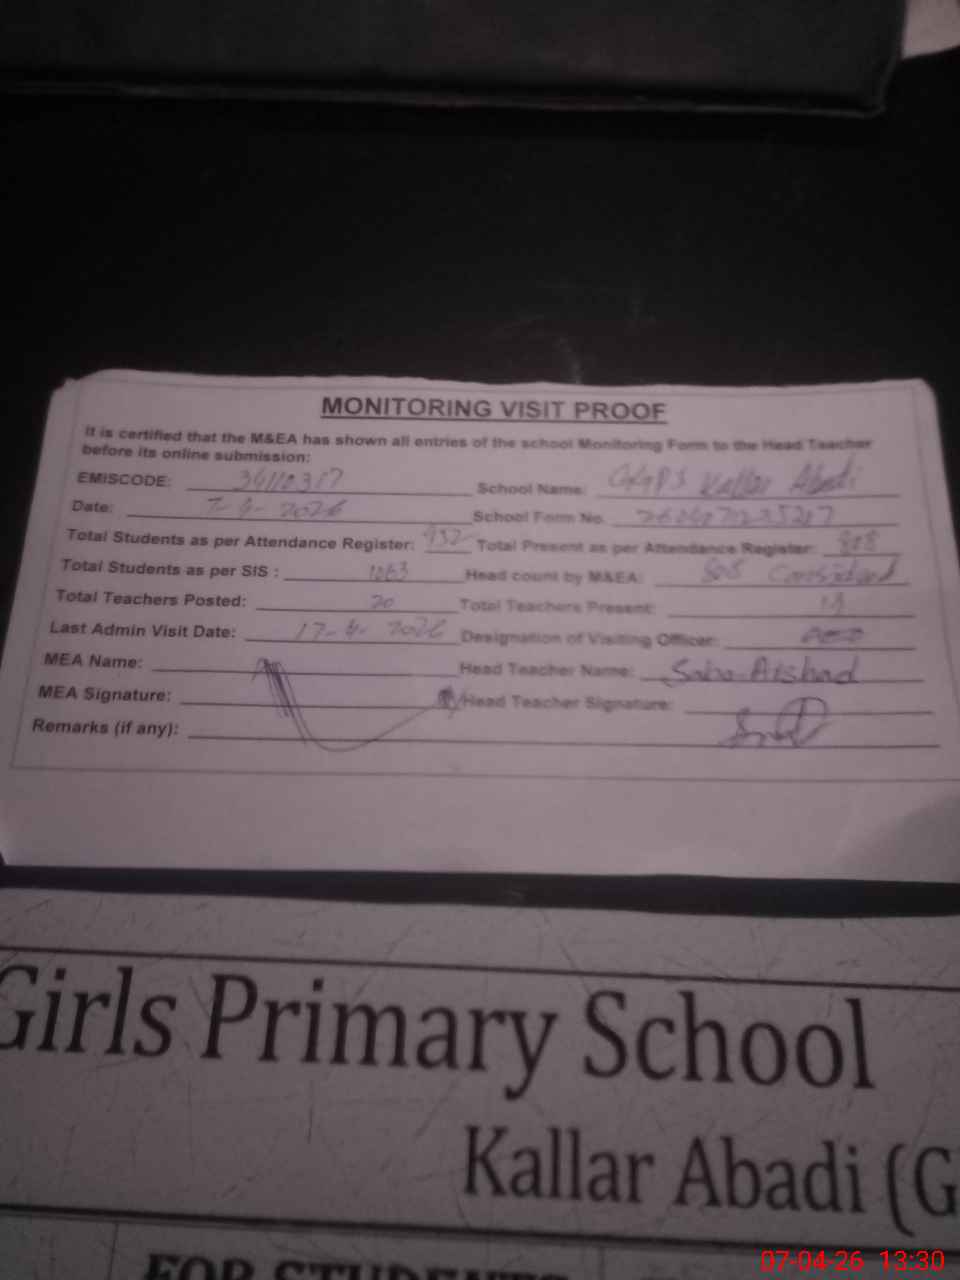 MONITORING VISIT PROOF
It is certified that the M&EA has shown all entries of the school Monitoring Form to the Head Teacher
before its online submission:
EMISCODE: 34110317 School Name: GGPS Kallar Abadi
Date: 7-4-2026 School Form No.
Total Students as per Attendance Register: 932 Total Present as per Attendance Register: 808
Total Students as per SIS : 1063 Head count by M&EA: 808 Considered
Total Teachers Posted: 20 Total Teachers Present:
Last Admin Visit Date: 17-4-2026 Designation of Visiting Officer: AEO
MEA Name: Head Teacher Name: Saba Arshad
MEA Signature: Head Teacher Signature:
Remarks (if any):
Girls Primary School
Kallar Abadi (G
FOR STUDENTS
07-04-26 13:30